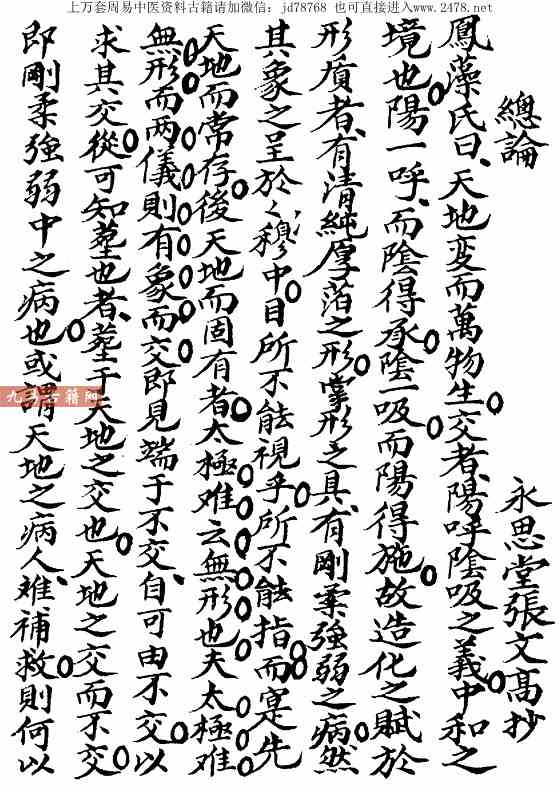 上万套周易中医资料古籍请加微信：jd78768 也可直接进入www.2478.net
總論
永思堂張文髙抄
鳳藻氏曰天地変而萬物生交者陽呼陰吸之義中和之
境也陽一呼而陰得承陰一吸而陽得施故造化之賦於
形質者有清純厚萡之形掌形之具有剛柔強弱之病然
其象之呈於く穆中目所不能視乎所不能指而寔先
天地而常存後天地而固有者太極难云無形也夫太極难
無形而两儀則有象而交即見端于不交自可由不交以
求其交從可知塟也者塟于天地之交也天地之交而不交
即剛柔強弱中之病也或謂天地之病人难補救則何以
九三古籍网